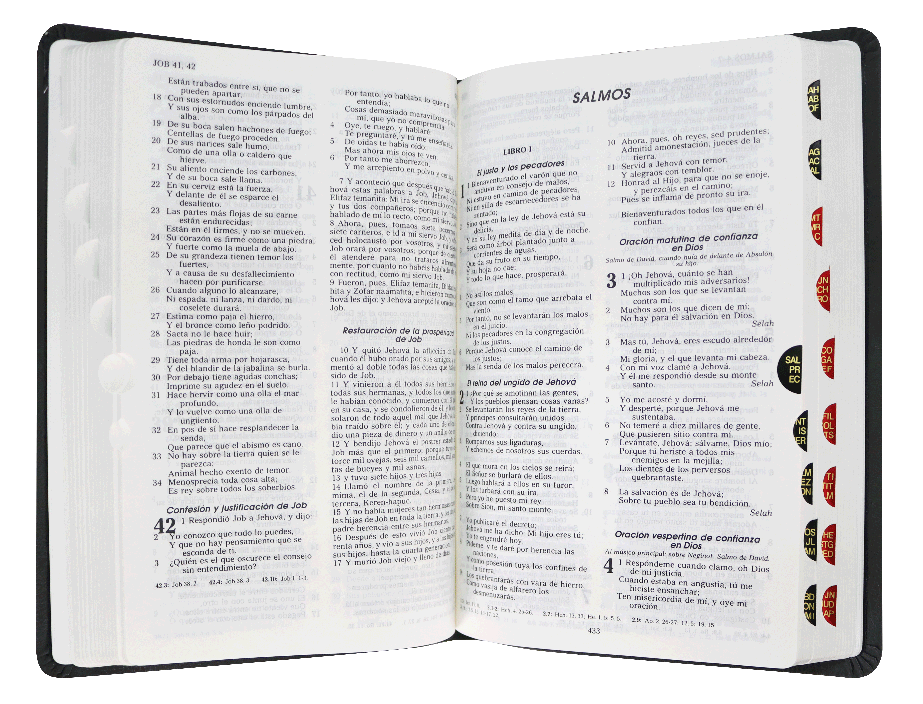 JOB 41, 42
Están trabados entre sí, que no se
pueden apartar.
18 Con sus estornudos enciende lumbre,
Y sus ojos son como los párpados del
alba.
19 De su boca salen hachones de fuego;
Centellas de fuego proceden.
20 De sus narices sale humo,
Como de una olla o caldero que
hierve.
21 Su aliento enciende los carbones,
Y de su boca sale llama.
22 En su cerviz está la fuerza,
Y delante de él se esparce el
desaliento.
23 Las partes más flojas de su carne
están endurecidas;
Están en él firmes, y no se mueven.
24 Su corazón es firme como una piedra,
Y fuerte como la muela de abajo.
25 De su grandeza tienen temor los
fuertes,
Y a causa de su desfallecimiento
hacen por purificarse.
26 Cuando alguno lo alcanzare,
Ni espada, ni lanza, ni dardo, ni
coselete durará.
27 Estima como paja el hierro,
Y el bronce como leño podrido.
28 Saeta no le hace huir;
Las piedras de honda le son como
paja.
29 Tiene toda arma por hojarasca,
Y del blandir de la jabalina se burla.
30 Por debajo tiene agudas conchas;
Imprime su agudez en el suelo.
31 Hace hervir como una olla el mar
profundo,
Y lo vuelve como una olla de
ungüento.
32 En pos de sí hace resplandecer la
senda,
Que parece que el abismo es cano.
33 No hay sobre la tierra quien se le
parezca;
Animal hecho exento de temor.
34 Menosprecia toda cosa alta;
Es rey sobre todos los soberbios.
Confesión y justificación de Job
42 1 Respondió Job a Jehová, y dijo:
2 Yo conozco que todo lo puedes,
Y que no hay pensamiento que se
esconda de ti.
3 ¿Quién es el que oscurece el consejo
sin entendimiento?
42.3: Job 38. 2. 42.4: Job 38. 3. 42.10: Job 1. 1-3.
Por tanto, yo hablaba lo que no
entendía;
Cosas demasiado maravillosas
mí, que yo no comprendía.
4 Oye, te ruego, y hablaré;
Te preguntaré, y tú me enseña
5 De oídas te había oído;
Mas ahora mis ojos te ven.
6 Por tanto me aborrezco,
Y me arrepiento en polvo y ceniza.
7 Y aconteció que después que
hová estas palabras a Job, Jehová
Elifaz temanita: Mi ira se encendió
y tus dos compañeros; porque no
hablado de mí lo recto, como mi siervo
8 Ahora, pues, tomaos siete
siete carneros, e id a mi siervo Job,
ced holocausto por vosotros, y
Job orará por vosotros; porque de
él atenderé para no trataros
mente, por cuanto no habéis hablado
con rectitud, como mi siervo Job.
9 Fueron, pues, Elifaz temanita, Bil
hita y Zofar naamatita, e hicieron
hová les dijo; y Jehová aceptó la
Job.
Restauración de la prosperidad
de Job
10 Y quitó Jehová la aflicción
cuando él hubo orado por sus amigos;
mentó al doble todas las cosas que
sido de Job.
11 Y vinieron a él todos sus hermanos
todas sus hermanas, y todos los que
le habían conocido, y comieron
en su casa, y se condolieron de él
solaron de todo aquel mal que Jehová
bía traído sobre él; y cada uno de
dio una pieza de dinero y un anillo
12 Y bendijo Jehová el postrer
Job más que el primero; porque
torce mil ovejas, seis mil camellos, mil
tas de bueyes y mil asnas,
13 y tuvo siete hijos y tres hijas.
14 Llamó el nombre de la primera
mima, el de la segunda, Cesia, y
tercera, Keren-hapuc.
15 Y no había mujeres tan hermosas
las hijas de Job en toda la tierra, y
padre herencia entre sus hermanos.
16 Después de esto vivió Job
renta años, y vio a sus hijos, y a
sus hijos, hasta la cuarta generación.
17 Y murió Job viejo y lleno de
SALMOS
LIBRO I
El justo y los pecadores
1 1 Bienaventurado el varón que no
anduvo en consejo de malos,
Ni estuvo en camino de pecadores,
Ni en silla de escarnecedores se ha
sentado;
Sino que en la ley de Jehová está su
delicia,
Y en su ley medita de día y de noche.
Será como árbol plantado junto a
corrientes de aguas,
Que da su fruto en su tiempo,
Y su hoja no cae;
Y todo lo que hace, prosperará.
No así los malos,
Que son como el tamo que arrebata el
viento.
Por tanto, no se levantarán los malos
en el juicio,
Ni los pecadores en la congregación
de los justos.
Porque Jehová conoce el camino de
los justos;
Mas la senda de los malos perecerá.
El reino del ungido de Jehová
2 1 ¿Por qué se amotinan las gentes,
Y los pueblos piensan cosas vanas?
Se levantarán los reyes de la tierra,
Y príncipes consultarán unidos
Contra Jehová y contra su ungido,
diciendo:
Rompamos sus ligaduras,
Y echemos de nosotros sus cuerdas.
El que mora en los cielos se reirá;
El Señor se burlará de ellos.
Luego hablará a ellos en su furor,
Y los turbará con su ira.
Pero yo he puesto mi rey
Sobre Sion, mi santo monte.
Yo publicaré el decreto;
Jehová me ha dicho: Mi hijo eres tú;
Yo te engendré hoy.
Pídeme, y te daré por herencia las
naciones,
Y como posesión tuya los confines de
la tierra.
Los quebrantarás con vara de hierro;
Como vasija de alfarero los
desmenuzarás.
10 Ahora, pues, oh reyes, sed prudentes;
Admitid amonestación, jueces de la
tierra.
11 Servid a Jehová con temor,
Y alegraos con temblor.
12 Honrad al Hijo, para que no se enoje,
y perezcáis en el camino;
Pues se inflama de pronto su ira.
Bienaventurados todos los que en él
confían.
Oración matutina de confianza
en Dios
Salmo de David, cuando huía de delante de Absalón
su hijo.
3 1 ¡Oh Jehová, cuánto se han
multiplicado mis adversarios!
Muchos son los que se levantan
contra mí.
2 Muchos son los que dicen de mí:
No hay para él salvación en Dios.
Selah
3 Mas tú, Jehová, eres escudo alrededor
de mí;
Mi gloria, y el que levanta mi cabeza.
4 Con mi voz clamé a Jehová,
Y él me respondió desde su monte
santo. Selah
5 Yo me acosté y dormí,
Y desperté, porque Jehová me
sustentaba.
6 No temeré a diez millares de gente,
Que pusieren sitio contra mí.
7 Levántate, Jehová; sálvame, Dios mío;
Porque tú heriste a todos mis
enemigos en la mejilla;
Los dientes de los perversos
quebrantaste.
8 La salvación es de Jehová;
Sobre tu pueblo sea tu bendición.
Selah
Oración vespertina de confianza
en Dios
Al músico principal; sobre Neginot. Salmo de David.
4 1 Respóndeme cuando clamo, oh Dios
de mi justicia.
Cuando estaba en angustia, tú me
hiciste ensanchar;
Ten misericordia de mí, y oye mi
oración.
433
SAL
PR
EC